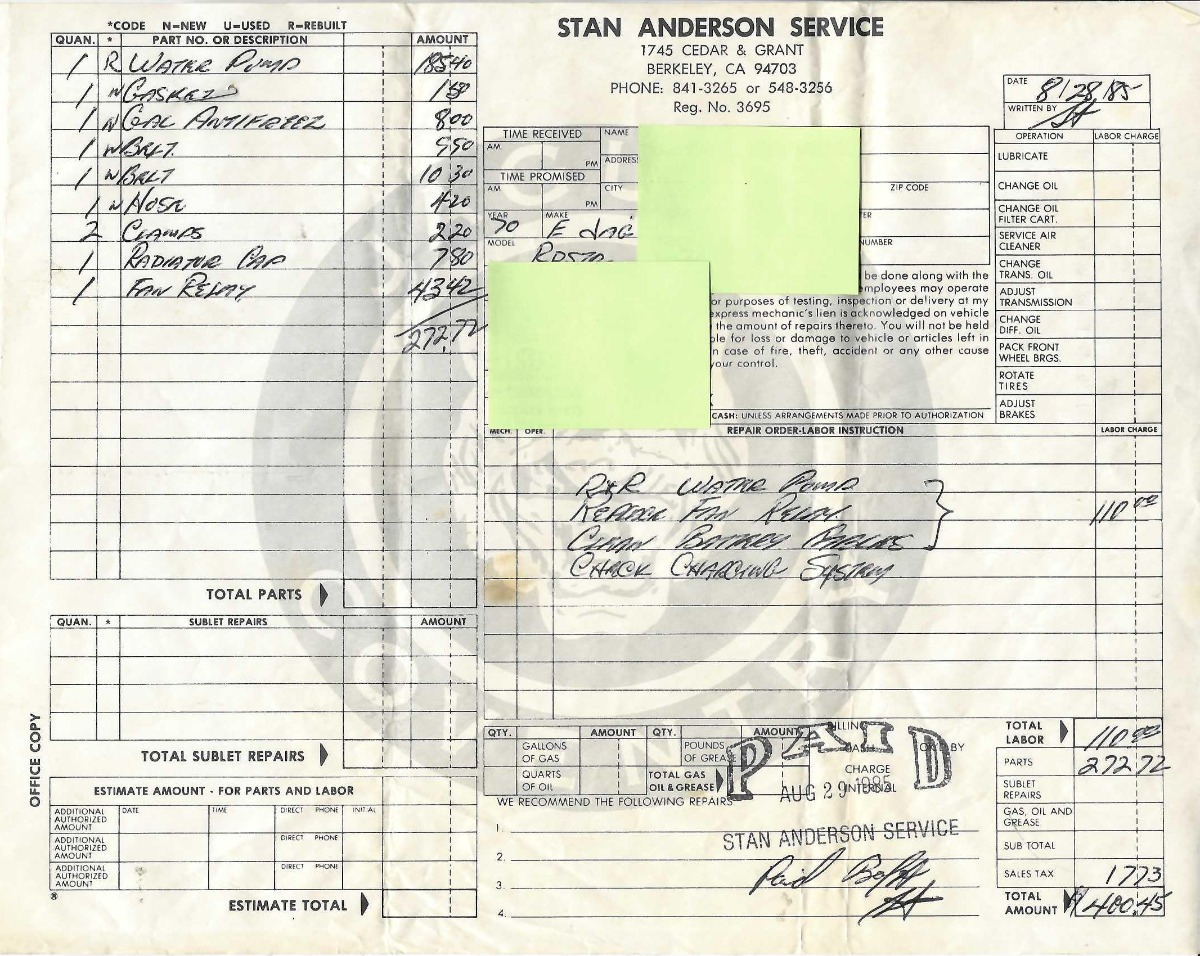 *CODE N=NEW U=USED R=REBUILT
QUAN. * PART NO. OR DESCRIPTION AMOUNT
1 R WATER PUMP 185 40
1 N GASKET 1 50
1 N GAL ANTIFREEZ 8 00
1 N BELT. 9 50
1 N BELT 10 30
1 N HOSE 4 20
2 CLAMPS 2 20
1 RADIATOR CAP 7 80
1 FAN RELAY 43 42
272.72
TOTAL PARTS
QUAN. * SUBLET REPAIRS AMOUNT
TOTAL SUBLET REPAIRS
ESTIMATE AMOUNT - FOR PARTS AND LABOR
ADDITIONAL AUTHORIZED AMOUNT DATE TIME DIRECT PHONE INITIAL
ADDITIONAL AUTHORIZED AMOUNT DIRECT PHONE
ADDITIONAL AUTHORIZED AMOUNT DIRECT PHONE
ESTIMATE TOTAL
OFFICE COPY
STAN ANDERSON SERVICE
1745 CEDAR & GRANT
BERKELEY, CA 94703
PHONE: 841-3265 or 548-3256
Reg. No. 3695
DATE 8/28/85
WRITTEN BY
TIME RECEIVED NAME
AM PM ADDRESS
TIME PROMISED
AM PM CITY ZIP CODE
YEAR 70 MAKE E JAG
MODEL NUMBER
be done along with the
employees may operate
or purposes of testing, inspection or delivery at my
express mechanic's lien is acknowledged on vehicle
the amount of repairs thereto. You will not be held
ble for loss or damage to vehicle or articles left in
n case of fire, theft, accident or any other cause
your control.
CASH: UNLESS ARRANGEMENTS MADE PRIOR TO AUTHORIZATION
OPERATION LABOR CHARGE
LUBRICATE
CHANGE OIL
CHANGE OIL FILTER CART.
SERVICE AIR CLEANER
CHANGE TRANS. OIL
ADJUST TRANSMISSION
CHANGE DIFF. OIL
PACK FRONT WHEEL BRGS.
ROTATE TIRES
ADJUST BRAKES
MECH. OPER. REPAIR ORDER-LABOR INSTRUCTION LABOR CHARGE
R&R WATER PUMP
REPLACE FAN RELAY. 110 00
CLEAN BATTREY
CHECK CHARGING SYSTEM
QTY. AMOUNT QTY. AMOUNT
GALLONS OF GAS POUNDS OF GREASE
QUARTS OF OIL TOTAL GAS OIL & GREASE
BILLING
CHARGE
INTERNAL
PAID
AUG 29 1985
STAN ANDERSON SERVICE
WE RECOMMEND THE FOLLOWING REPAIRS
1.
2.
3. Paid
4.
TOTAL LABOR 110.00
PARTS 272 72
SUBLET REPAIRS
GAS, OIL AND GREASE
SUB TOTAL
SALES TAX 17 73
TOTAL AMOUNT 400.45